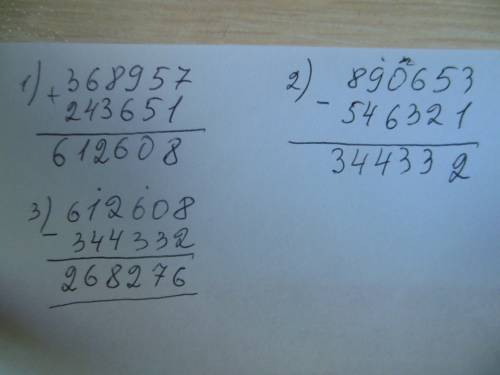 1) + 368957
243651
612608
2) - 890653
546321
344332
3) - 612608
344332
268276